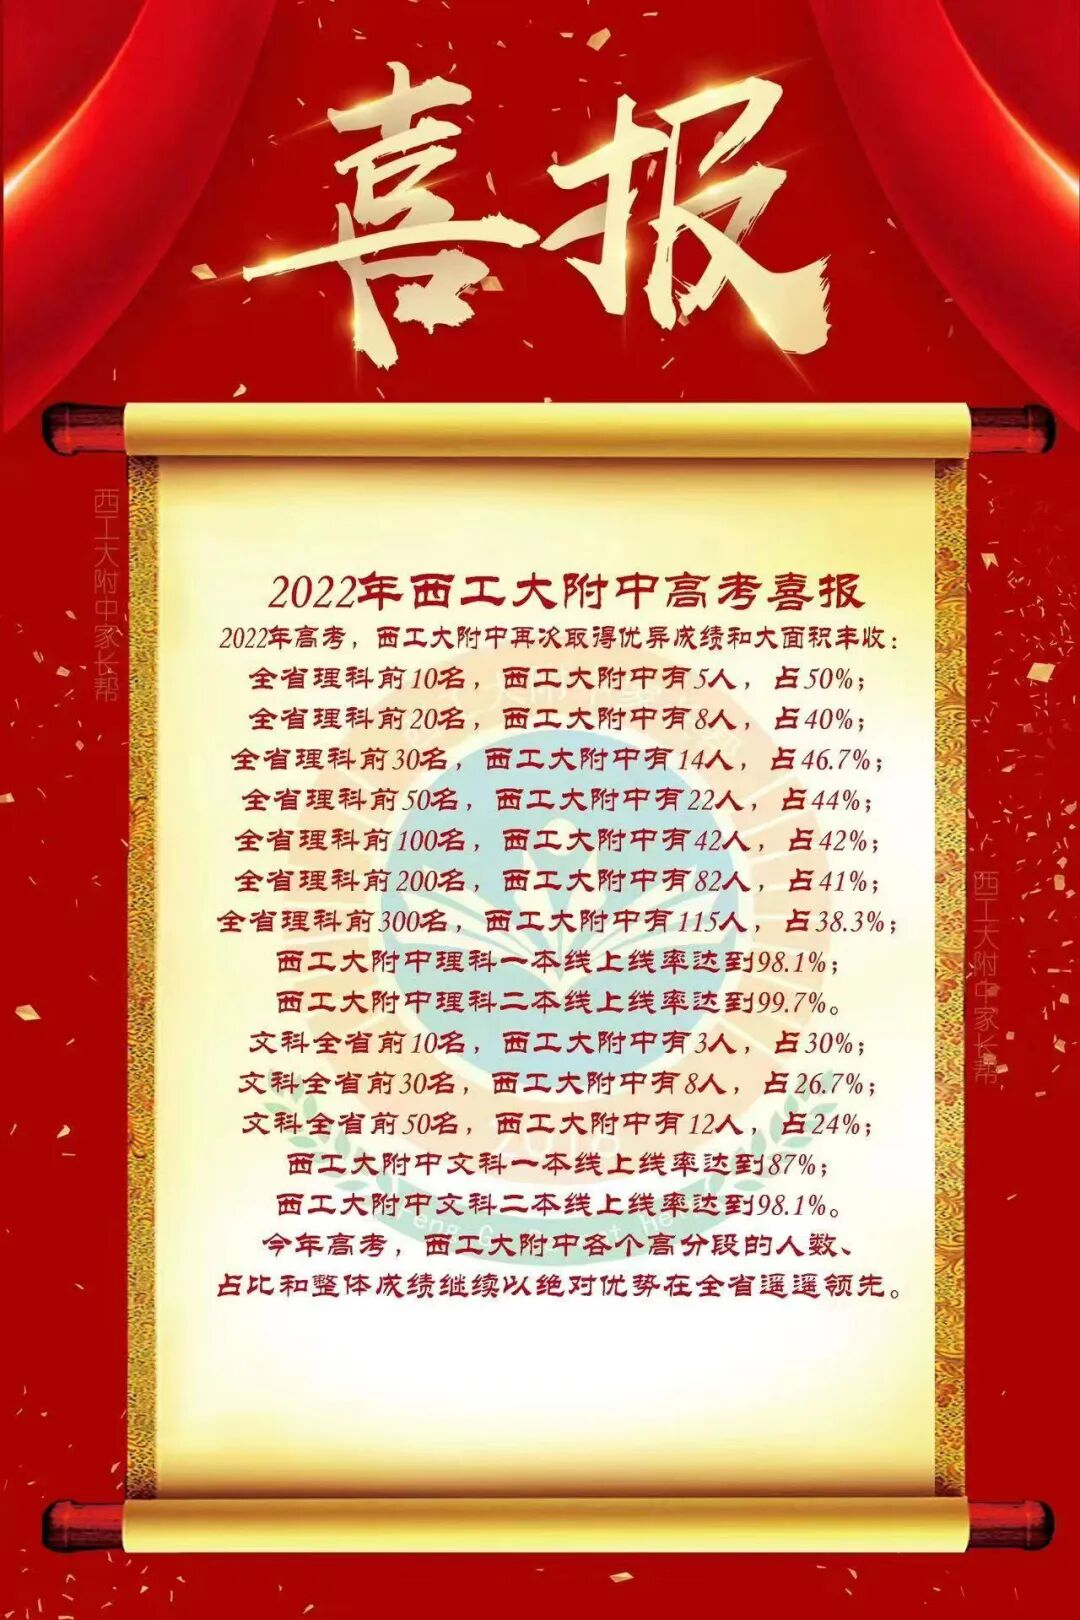 喜报
西工大附中家长帮
2022年西工大附中高考喜报
2022年高考，西工大附中再次取得优异成绩和大面积丰收：
全省理科前10名，西工大附中有5人，占50%；
全省理科前20名，西工大附中有8人，占40%；
全省理科前30名，西工大附中有14人，占46.7%；
全省理科前50名，西工大附中有22人，占44%；
全省理科前100名，西工大附中有42人，占42%；
全省理科前200名，西工大附中有82人，占41%；
全省理科前300名，西工大附中有115人，占38.3%；
西工大附中理科一本线上线率达到98.1%；
西工大附中理科二本线上线率达到99.7%。
文科全省前10名，西工大附中有3人，占30%；
文科全省前30名，西工大附中有8人，占26.7%；
文科全省前50名，西工大附中有12人，占24%；
西工大附中文科一本线上线率达到87%；
西工大附中文科二本线上线率达到98.1%。
今年高考，西工大附中各个高分段的人数、
占比和整体成绩继续以绝对优势在全省遥遥领先。
西工大附中家长帮
2018